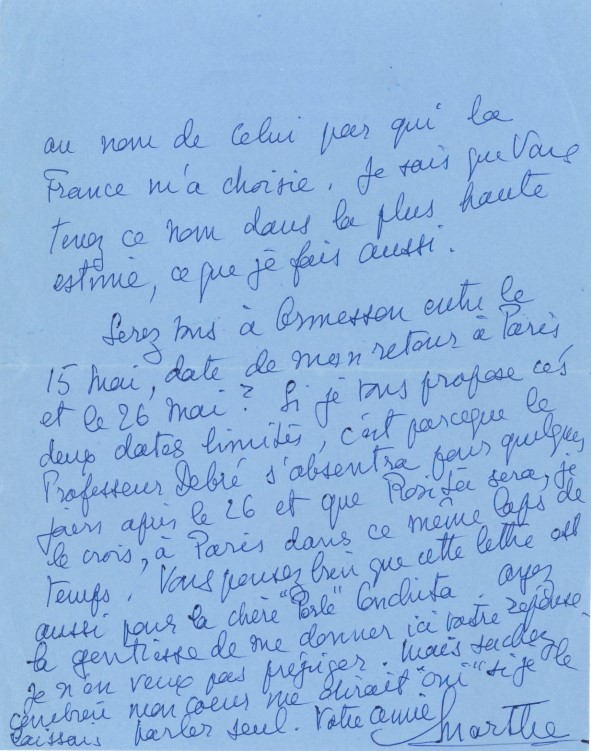 au nom de Celui par qui la
France m'a choisie. Je sais que Vous
tenez ce nom dans la plus haute
estime, ce que je fais aussi.
Serez vous à Ormesson entre le
15 Mai, date de mon retour à Paris
et le 26 Mai ? Si je vous propose ces
deux dates limites, c'est parceque le
Professeur Debré s'absentra pour quelques
jours après le 26 et que Rosita sera, je
le crois, à Paris dans ce même laps de
temps. Vous pensez bien que cette lettre est
aussi pour la chère "Perle" Conchita. Ayez
la gentiesse de me donner ici votre réponse.
Je n'en veux pas préjuger. Mais sachez
combien mon coeur me dirait "oui" si je le
laissais parler seul. Votre amie Marthe